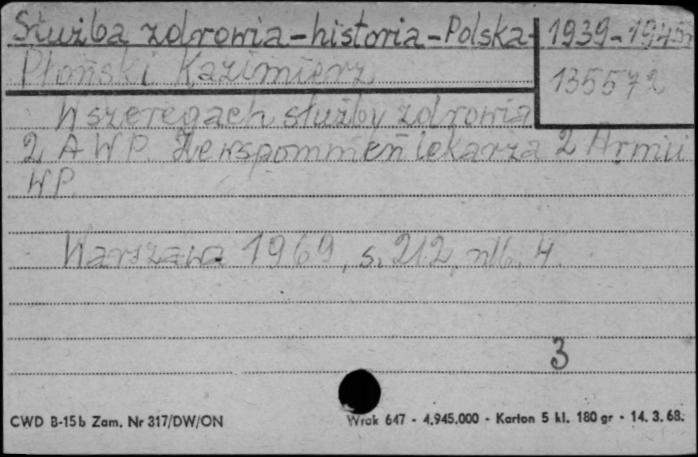 Służba zdrowia - historia - Polska - 1939-1945r
Płoński Kazimierz 135572
W szeregach służby zdrowia
2 A WP. Ze wspomnień lekarza 2 Armii
WP
Warszawa 1969, s. 212, nlb. 4.
3
CWD B-15b Zam. Nr 317/DW/ON Wrak 647 - 4.945.000 - Karton 5 kl. 180 gr - 14. 3. 68.